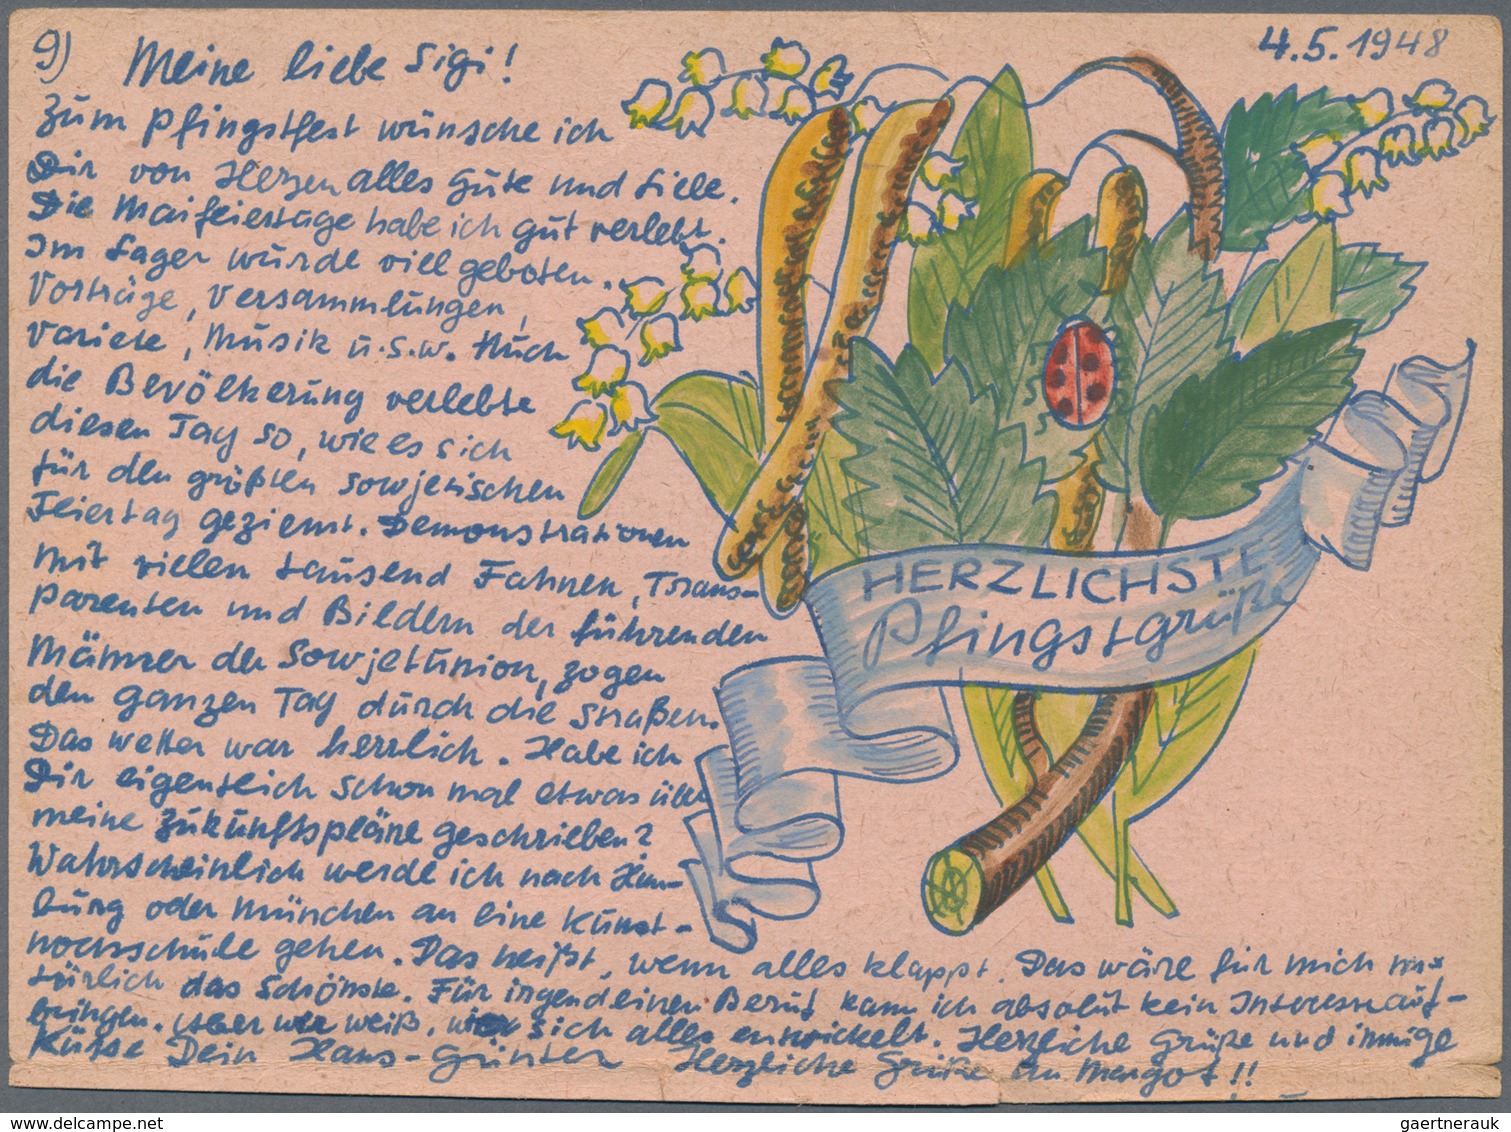 9) Meine liebe Sigi!
4.5.1948
Zum Pfingstfest wünsche ich
Dir von Herzen alles Gute und Liebe.
Die Maifeiertage habe ich gut verlebt.
Im Lager wurde viel geboten.
Vorträge, Versammlungen,
Variete, Musik u.s.w. Auch
die Bevölkerung verlebte
diesen Tag so, wie es sich
für den größten sowjetischen
Feiertag geziemt. Demonstrationen
mit vielen tausend Fahnen, Trans-
parenten und Bildern der führenden
Männer der Sowjetunion, zogen
den ganzen Tag durch die Straßen.
Das Wetter war herrlich. Habe ich
Dir eigentlich schon mal etwas über
meine Zukunftspläne geschrieben?
Wahrscheinlich werde ich nach Ham-
burg oder München an eine Kunst-
hochschule gehen. Das heißt, wenn alles klappt. Das wäre für mich na-
türlich das Schönste. Für irgend einen Beruf kann ich absolut kein Interesse auf-
bringen. Aber wer weiß, wie sich alles entwickelt. Herzliche Grüße und innige
Küsse Dein Hans-Günter Herzliche Grüße an Margot!!
HERZLICHSTE
Pfingstgrüße
www.delcampe.net
gaertnerauk